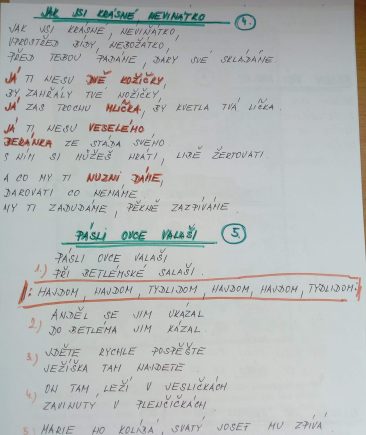 JAK JSI KRÁSNÉ NEVIŇÁTKO 4.
JAK JSI KRÁSNÉ, NEVIŇÁTKO,
VPROSTŘED BÍDY, NEBOŽÁTKO,
PŘED TEBOU PADÁME, DARY SVÉ SKLÁDÁME.
JÁ TI NESU DVĚ KOŽIČKY,
BY ZAHŘÁLY TVÉ NOŽIČKY,
JÁ ZAS TROCHU MLÍČKA, BY KVETLA TVÁ LÍČKA.
JÁ TI NESU VESELÉHO
BERÁNKA ZE STÁDA SVÉHO
S NÍM SI MŮŽEŠ HRÁTI, LIBĚ ŽERTOVATI
A CO MY TI NUZNÍ DÁME,
DAROVATI CO NEMÁME
MY TI ZADUDÁME, PĚKNĚ ZAZPÍVÁME.
PÁSLI OVCE VALAŠI 5.
PÁSLI OVCE VALAŠI
1.) PŘI BETLÉMSKÉ SALAŠI.
|: HAJDOM, HAJDOM, TYDLIDOM, HAJDOM, HAJDOM, TYDLIDOM :|
2.) ANDĚL SE JIM UKÁZAL
DO BETLÉMA JIM KÁZAL
3.) JDĚTE RYCHLE POSPĚŠTE
JEŽÍŠKA TAM NAJDETE
4.) ON TAM LEŽÍ V JESLIČKÁCH
ZAVINUTÝ V PLENČIČKÁCH
5.) MARIE HO KOLÍBÁ, SVATÝ JOSEF MU ZPÍVÁ